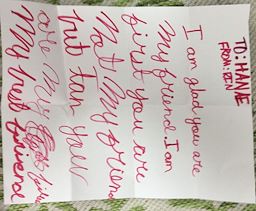 TO:
FROM:
I am glad you are
my friend. I am
first you are
Not my friend
but tan your
are my
My best friend